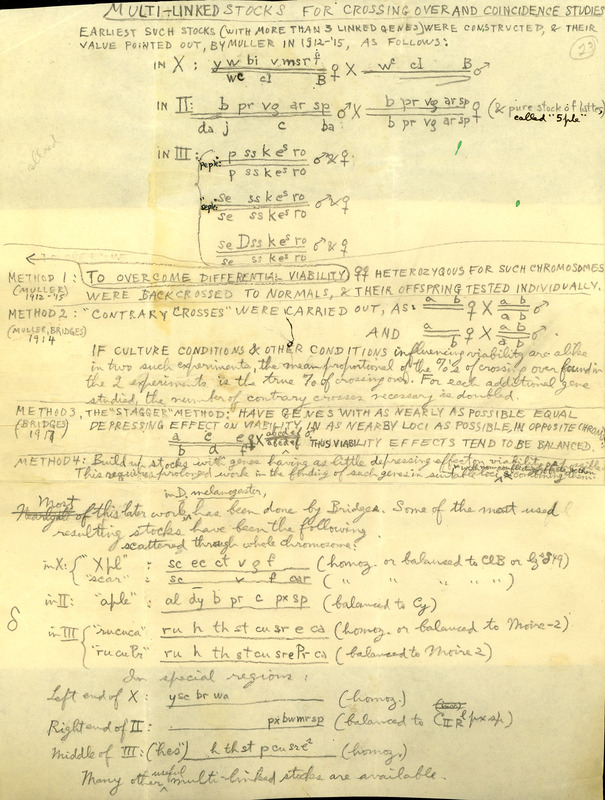 MULTI-LINKED STOCKS FOR CROSSING OVER AND COINCIDENCE STUDIES
EARLIEST SUCH STOCKS (WITH MORE THAN 3 LINKED GENES) WERE CONSTRUCTED, & THEIR
23
VALUE POINTED OUT, BY MULLER IN 1912-'15, AS FOLLOWS:
IN X: y w bi v m s r f ♀ X wᵉ cl B ♂
wᵉ cl B
IN II: b pr vg ar sp ♂ X b pr vg ar sp ♀ (& pure stock of latter,
da j c ba b pr vg ar sp called "5ple")
IN III: pepk: p ss k eˢ ro ♂ & ♀
p ss k eˢ ro
sepk: se ss k eˢ ro ♂ & ♀
se ss k eˢ ro
se D ss k eˢ ro ♂ & ♀
se ss k eˢ ro
METHOD 1: TO OVERCOME DIFFERENTIAL VIABILITY, ♀♀ HETEROZYGOUS FOR SUCH CHROMOSOMES
(MULLER) 1912-'15 WERE BACKCROSSED TO NORMALS, & THEIR OFFSPRING TESTED INDIVIDUALLY.
METHOD 2: "CONTRARY CROSSES" WERE CARRIED OUT, AS: a b ♀ X a b ♂
a b
(MULLER, BRIDGES) 1914
AND a ♀ X a b ♂.
b a b
IF CULTURE CONDITIONS & OTHER CONDITIONS influencing viability are alike
in two such experiments, the mean proportional of the %'s of crossing over found in
the 2 experiments, is the true % of crossing over. For each additional gene
studied, the number of contrary crosses necessary is doubled.
METHOD 3, THE "STAGGER" METHOD: HAVE GENES WITH AS NEARLY AS POSSIBLE EQUAL
(BRIDGES) DEPRESSING EFFECT ON VIABILITY, IN AS NEARBY LOCI AS POSSIBLE, IN OPPOSITE
a c e ♀ X a b c d e f ♂ THUS VIABILITY EFFECTS TEND TO BE BALANCED.
b d f a b c d e f
METHOD 4: Build up stocks with genes having as little depressing effect on viability
This requires prolonged work in the finding of such genes in suitable loci &
in D. melanogaster,
Most of this later work has been done by Bridges. Some of the most used
resulting stocks have been the following
scattered through whole chromosome:
in X: { "Xpl" : sc ec ct v g f (homoz. or balanced to ClB
"scar" : sc v f car ( " " " " )
in II: "aple" : al dy b pr c px sp (balanced to Cy)
in III { "rucuca" ru h th st cu sr e ca (homoz. or balanced to Moire-2)
"rucuPr" ru h th st cu sr e Pr ca (balanced to Moire 2)
In special regions:
Left end of X: y sc br wa (homoz.)
Right end of II: px bw mr sp (balanced to px sp)
Middle of III: ("hes") h th st p cu sr e² (homoz.)
Many other useful multi-linked stocks are available.